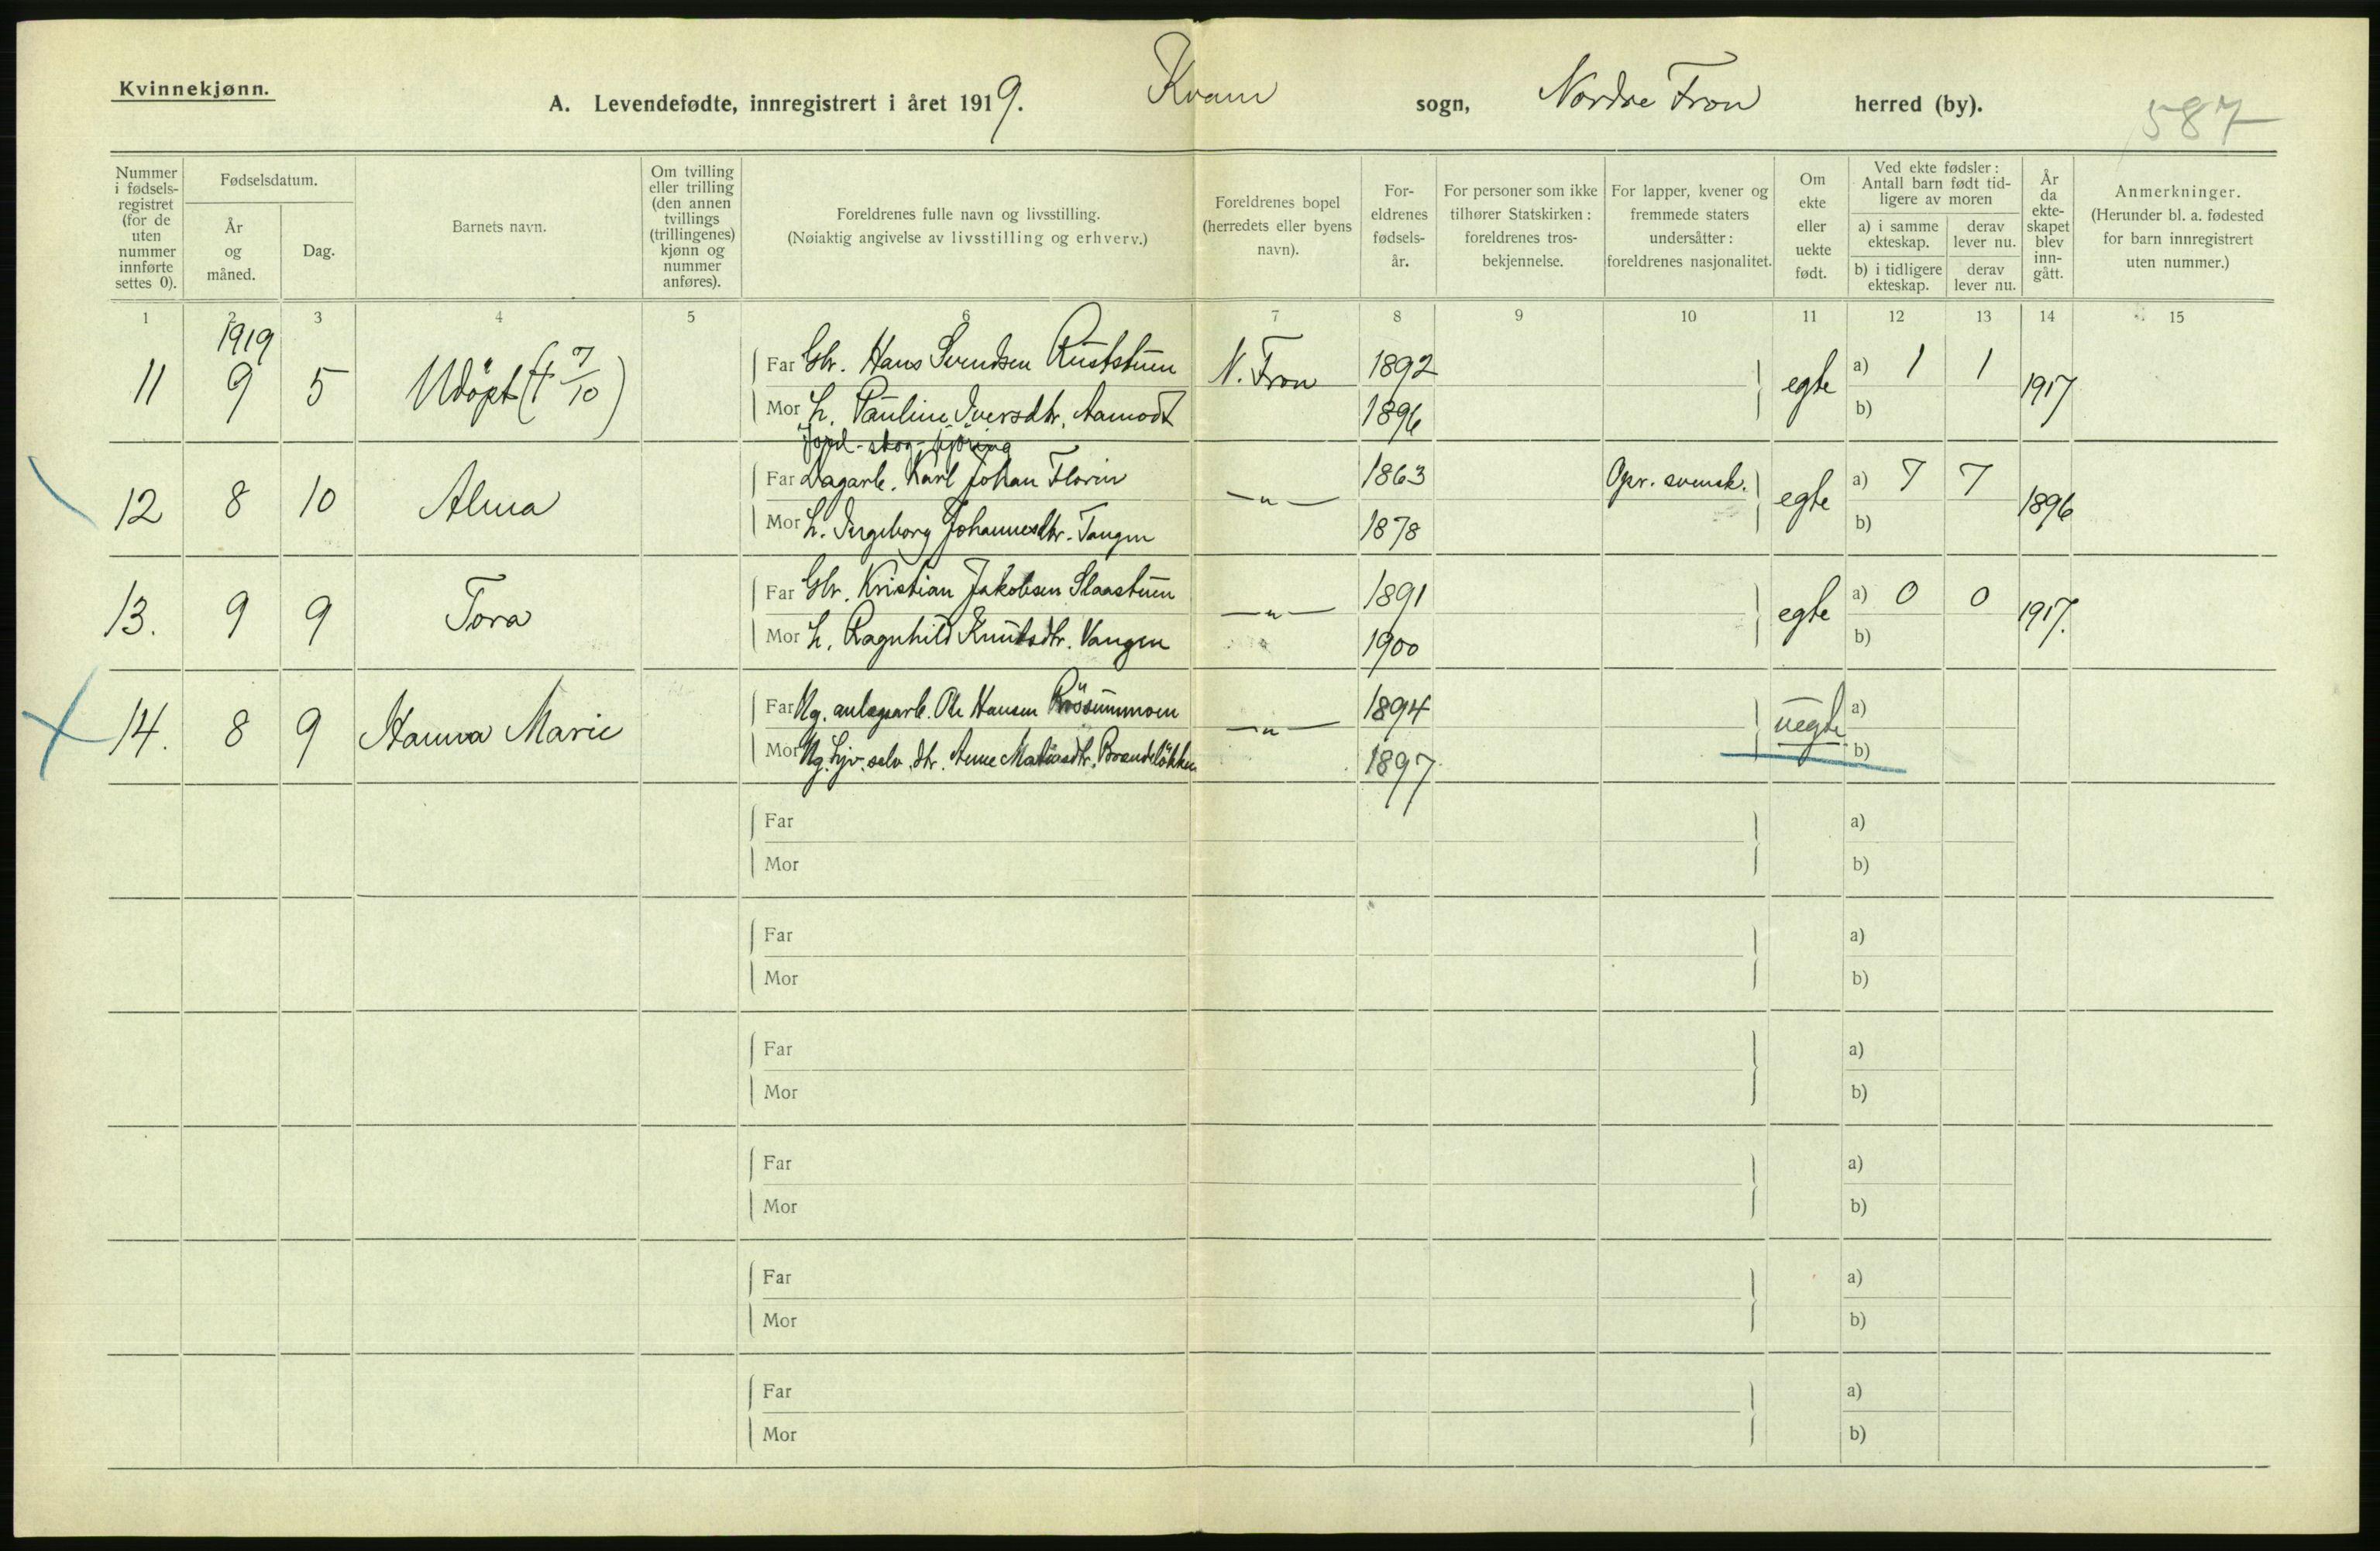 Kvinnekjønn.
A. Levendefødte, innregistrert i året 1919. Kvam sogn, Nordre Fron herred (by).
587
Nummer i fødsels-registret (for de uten nummer innførte settes 0).
Fødselsdatum.
År og måned.
Dag.
Barnets navn.
Om tvilling eller trilling (den annen tvillings (trillingenes) kjønn og nummer anføres).
Foreldrenes fulle navn og livsstilling.
(Nøiaktig angivelse av livsstilling og erhverv.)
Foreldrenes bopel (herredets eller byens navn).
For-eldrenes fødsels-år.
For personer som ikke tilhører Statskirken: foreldrenes tros-bekjennelse.
For lapper, kvener og fremmede staters undersåtter: foreldrenes nasjonalitet.
Om ekte eller uekte født.
Ved ekte fødsler: Antall barn født tid-ligere av moren
a) i samme ekteskap.
derav lever nu.
b) i tidligere ekteskap.
derav lever nu.
År da ekte-skapet blev inn-gått.
Anmerkninger.
(Herunder bl. a. fødested for barn innregistrert uten nummer.)
1 2 3 4 5 6 7 8 9 10 11 12 13 14 15
1919
11 9 5 Udöpt († 7/10)
Far Gbr. Hans Svendsen Ruststuen N. Fron 1892 egte a) 1 1 1917
Mor h. Pauline Iversdtr. Aamodt 1896 b)
Jord-skog-kjöring
12 8 10 Alma
Far Dagarb. Karl Johan Florin —"— 1863 Opr. svensk. egte a) 7 7 1896
Mor h. Ingeborg Johannesdtr. Tangen 1878 b)
13. 9 9 Tora
Far Gbr. Kristian Jakobsen Slaastuen —"— 1891 egte a) 0 0 1917.
Mor h. Ragnhild Knutsdtr. Vangen 1900 b)
14. 8 9 Hanna Marie
Far Ug. anlægsarb. Ole Hansen Rösummoen —"— 1894 uegte a)
Mor Ug. hjv. selv. dtr. Anne Matiasdtr. Brændelökken 1897 b)
Far a)
Mor b)
Far a)
Mor b)
Far a)
Mor b)
Far a)
Mor b)
Far a)
Mor b)
Far a)
Mor b)